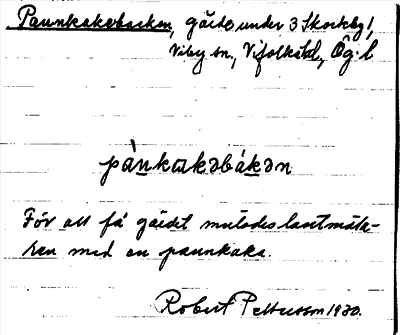 Pannkakebacken, gärde under 3 Skorteby!,
Viby sn., Vifolka hd, Ög. l
pànkɑkəbákən
För att få gärdet mutades lantmäta-
ren med en pannkaka.
Robert Pettersson 1930.